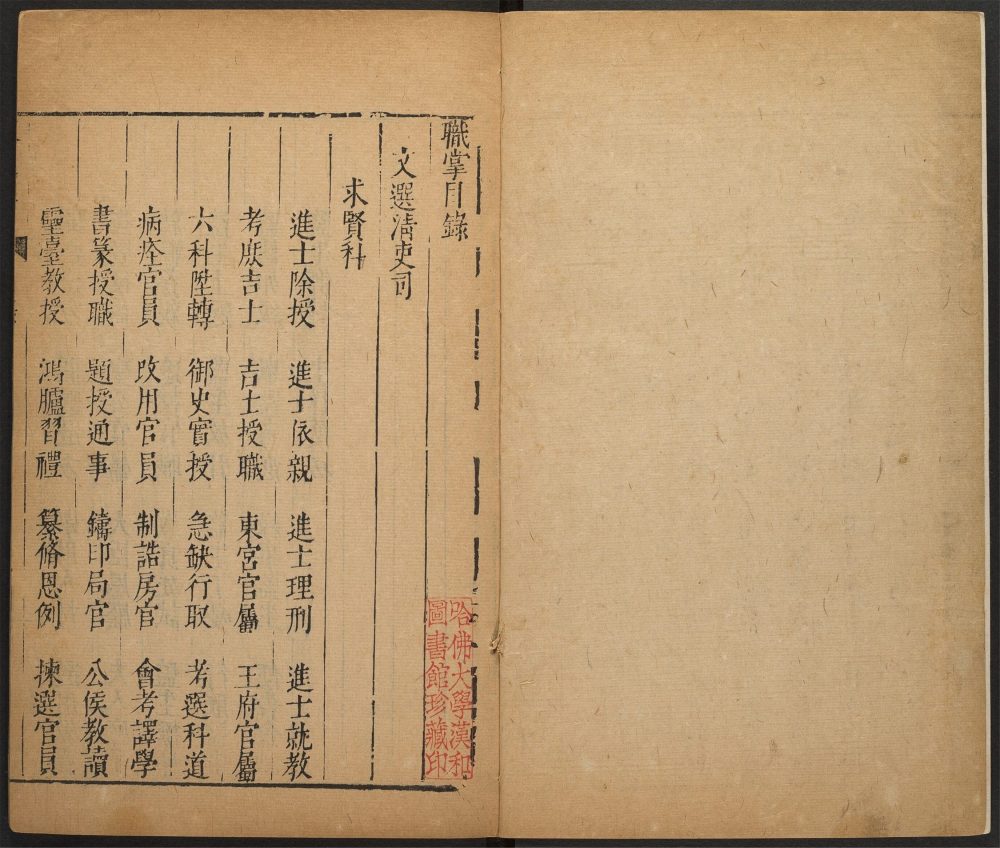 職掌目錄
文選清吏司
求賢科
進士除授 進士依親 進士理刑 進士就教
考庶吉士 吉士授職 東宮官屬 王府官屬
六科陞轉 御史實授 急缺行取 考選科道
病痊官員 改用官員 制誥房官 會考譯學
書篆授職 題授通事 鑄印局官 公侯教讀
靈臺教授 鴻臚習禮 纂脩恩例 揀選官員
哈佛大學漢和
圖書館珍藏印